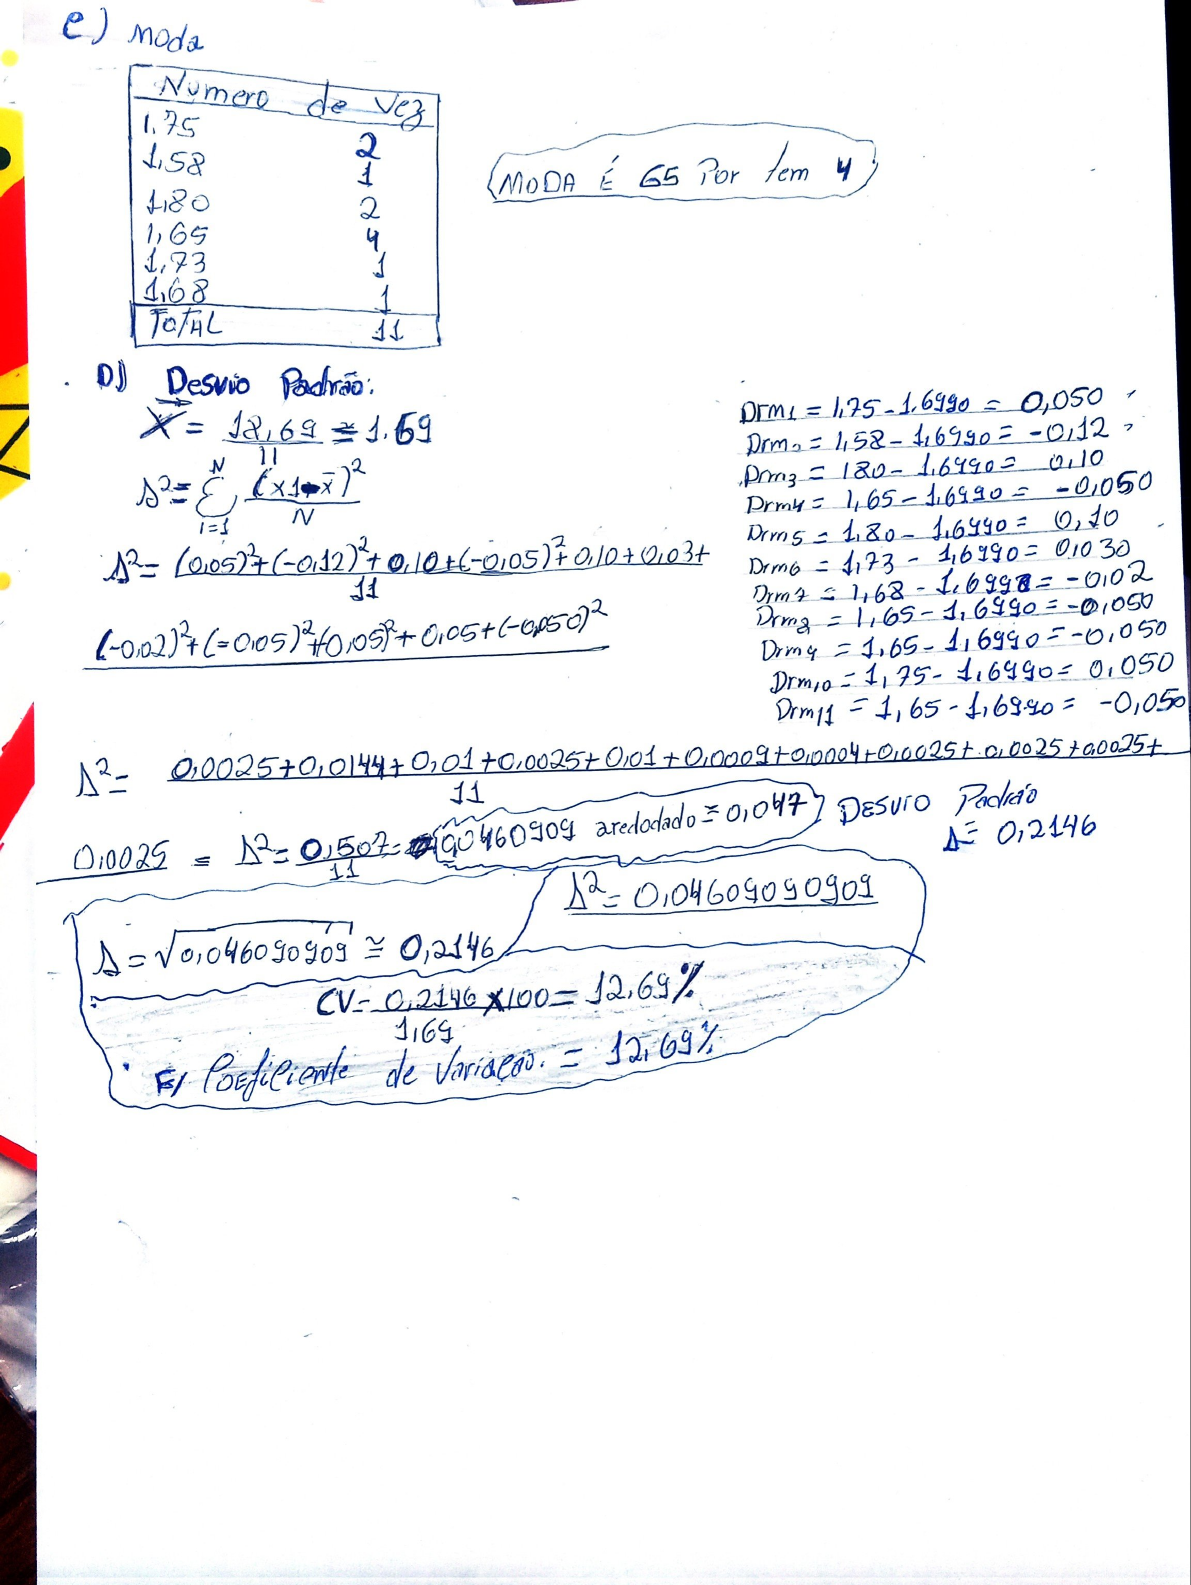 e) Moda
Numero de vez
1,75 2
1,58 1
1,80 2
1,65 4
1,73 1
1,68 1
TOTAL 11
MODA É 65 Por tem 4
D) Desvio Padrão:
X̄ = 18,69 ≅ 1.69
11
s² = N Σ i=1 (x1-x̄)²
N
s² = (0,05)²+(-0,12)²+0,10+(-0,05)²+0,10+0,03+
11
(-0,02)²+(-0,05)²+(0,05)²+0,05+(-0,050)²
Drm1 = 1,75 - 1.6990 = 0,050
Drm2 = 1,58 - 1,6990 = -0,12
Drm3 = 180 - 1,6990 = 0,10
Drm4 = 1,65 - 1,6990 = -0,050
Drm5 = 1,80 - 1,6990 = 0,10
Drm6 = 1,73 - 1,6990 = 0,030
Drm7 = 1,68 - 1,6990 = -0,02
Drm8 = 1,65 - 1,6990 = -0,050
Drm9 = 1,65 - 1,6990 = -0,050
Drm10 = 1,75 - 1,6990 = 0,050
Drm11 = 1,65 - 1,6990 = -0,050
s² = 0,0025+0,0144+0,01+0,0025+0,01+0,0009+0,0004+0,0025+0,0025+0,0025+
11
0,0025 = s² = 0,507 = 0,0460909 aredodado ≅ 0,047
11
DESVIO Padrão
s = 0,2146
s² = 0,04609090909
s = √0,046090909 ≅ 0,2146
CV = 0,2146 x100 = 12,69%
1,69
F) Coeficiente de Variação. = 12,69%